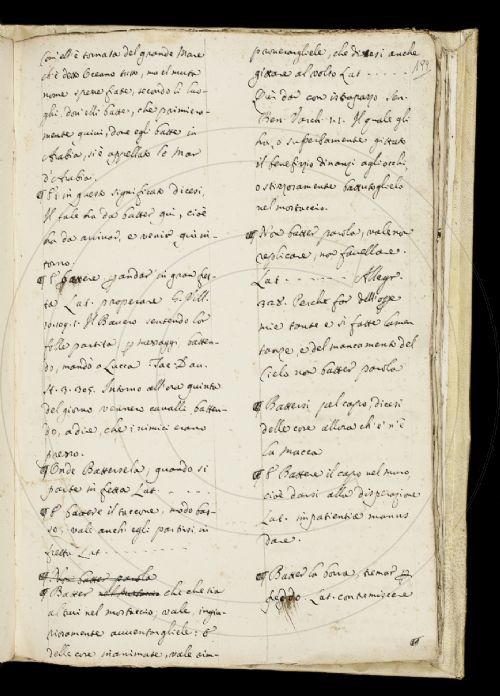 com'ell'è tornata del grande Mare
ch'è detto Oceano tutto, ma el muta
nome spesse fiate, secondo li luo-
ghi, dov'elli batte, che primiera-
mente quivi, dove egli batte in
Arabia, si è appellato lo Mar
d'Arabia.
¶ E in questo significato dicesi,
Il tale ha da batter qui, cioè
ha da arrivar, e venir qui in-
torno.
¶ E battere andar in gran fret-
ta Lat. properare G. Vill.
10. 109. 1. Il Bavero sentendo la
folle partita messaggi batten-
do, mandò a Lucca Tac. Dav.
St. 3. 305. Intorno all'ora quinta
del giorno vennero cavalli batten-
do, a dire, che i nimici erano
presso.
¶ Onde Battersela, quando si
parte in fretta Lat. - - - -
¶ E battere il taccone, modo bas-
so, vale anch'egli partirsi in
fretta Lat. - - - - - - - -
¶ Non batter parola
¶ Batter che che sia
altrui nel mostaccio, vale, ingiu-
riosamente avventargliele: E
delle cose inanimate, vale rim-
proverargliele, che dicesi anche
gittare al volto Lat. - - - - -
Dir dar con istrapazzo Sen.
Ben. Varch. 1. 1. Il quale gli
ha, o superbamente gittato
il benefizio dinanzi agli occhi,
o stizzosamente battutoglielo
nel mostaccio.
¶ Non batter parola, vale non
replicare, non favellare.
Lat. - - - - - - - Allegr.
328. Perchè for dell'
mie tante e sì fatte lamen-
tanze, e del mancamento del
Cielo non batter parola
¶ Battersi pel capo, dicesi
delle cose allora ch'e' n'è
la macca
¶ E Battere il capo nel muro,
cioè darsi alla disperazione
Lat. impatientiæ manus
dare.
¶ Batter la borra, tremar
freddo. Lat. contremiscere